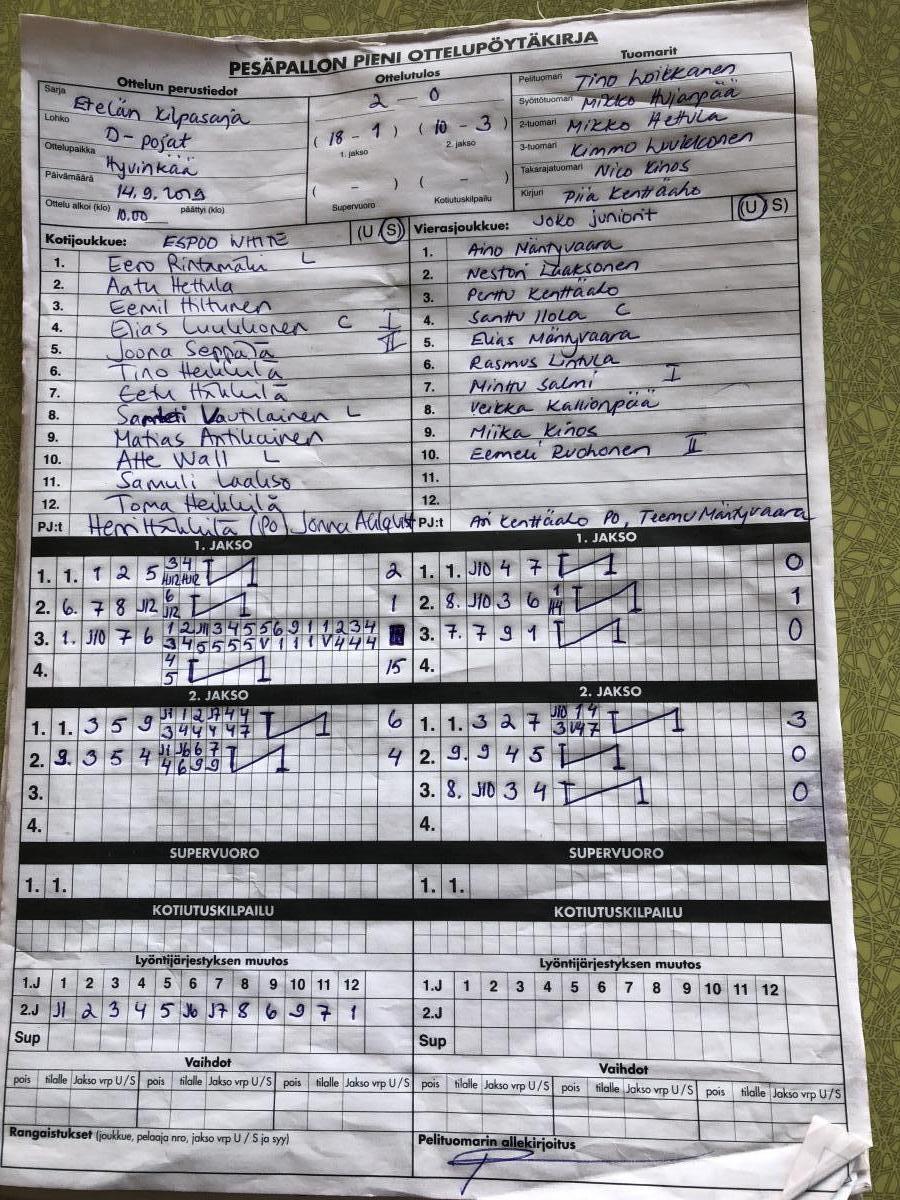 PESÄPALLON PIENI OTTELUPÖYTÄKIRJA
Ottelun perustiedot
Sarja Etelän kilpasarja
Lohko D-pojat
Ottelupaikka Hyvinkää
Päivämäärä 14.9.2019
Ottelu alkoi (klo) 10.00 päättyi (klo)
Ottelutulos
2 - 0
( 18 - 1 ) ( 10 - 3 )
1. jakso 2. jakso
( - ) ( - )
Supervuoro Kotiutuskilpailu
Tuomarit
Pelituomari Tino Loikkanen
Syöttötuomari Mikko Hujanpää
2-tuomari Mikko Hettula
3-tuomari Kimmo Luukkonen
Takarajatuomari Nico Kinos
Kirjuri Piia Kenttäaho
Kotijoukkue: ESPOO WHITE (U S)
1. Eero Rintamäki L
2. Aatu Hettula
3. Eemil Hiltunen
4. Elias Luukkonen C I
5. Joona Seppälä II
6. Tino Heikkilä
7. Eetu Häkkilä
8. Vautilainen L
9. Matias Antikainen
10. Atte Wall L
11. Samuli Laakso
12. Toma Heikkilä
PJ:t Henri Häkkilä (PO) Jonna Ahlqvist
Vierasjoukkue: Joko juniorit (U S)
1. Aino Mäntyvaara
2. Nestori Laaksonen
3. Perttu Kenttäaho
4. Santtu Ilola C
5. Elias Mäntyvaara
6. Rasmus Lintula
7. Minttu Salmi I
8. Veikka Kallionpää
9. Miika Kinos
10. Eemeli Ruohonen II
11.
12.
PJ:t Ari Kenttäaho PO, Teemu Mäntyvaara
1. JAKSO
1. 1. 1 2 5 3 4 2
H12 H12
2. 6. 7 8 J12 6 1
J12
3. 1. J10 7 6 1 2 J11 3 4 5 5 6 9 1 1 2 3 4
3 4 5 5 5 5 V 1 1 1 V 4 4 4
4. 4 15
5
1. JAKSO
1. 1. J10 4 7 0
2. 8. J10 3 6 1 1
3. 7. 7 9 1 0
4.
2. JAKSO
1. 1. 3 5 9 J1 1 2 J7 4 4 6
3 4 4 4 4 7
2. 9. 3 5 4 J1 J6 6 7 4
4 6 9 9
3.
4.
2. JAKSO
1. 1. 3 2 7 J10 1 4 3
3 V4 7
2. 9. 9 4 5 0
3. 8. J10 3 4 0
4.
SUPERVUORO
1. 1.
SUPERVUORO
1. 1.
KOTIUTUSKILPAILU
KOTIUTUSKILPAILU
Lyöntijärjestyksen muutos
1.J 1 2 3 4 5 6 7 8 9 10 11 12
2.J J1 2 3 4 5 J6 J7 8 6 9 7 1
Sup
Lyöntijärjestyksen muutos
1.J 1 2 3 4 5 6 7 8 9 10 11 12
2.J
Sup
Vaihdot
pois tilalle Jakso vrp U/S pois tilalle Jakso vrp U/S pois tilalle Jakso vrp U/S
Vaihdot
pois tilalle Jakso vrp U/S pois tilalle Jakso vrp U/S pois tilalle Jakso vrp U/S
Rangaistukset (joukkue, pelaaja nro, jakso vrp U / S ja syy)
Pelituomarin allekirjoitus